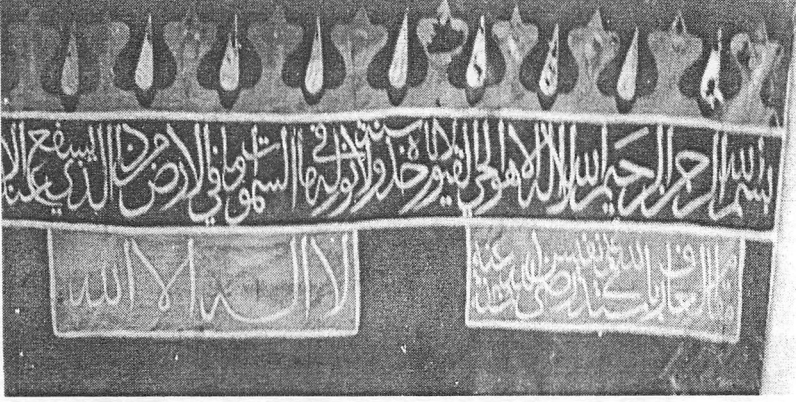 بسم الله الرحمن الرحيم الله لا اله الا هو الحي القيوم لا تاخذه سنة ولا نوم له ما في السموات وما في الارض من ذا الذي يشفع عنده الا
الله
رضي الله عنه
لا اله الا الله